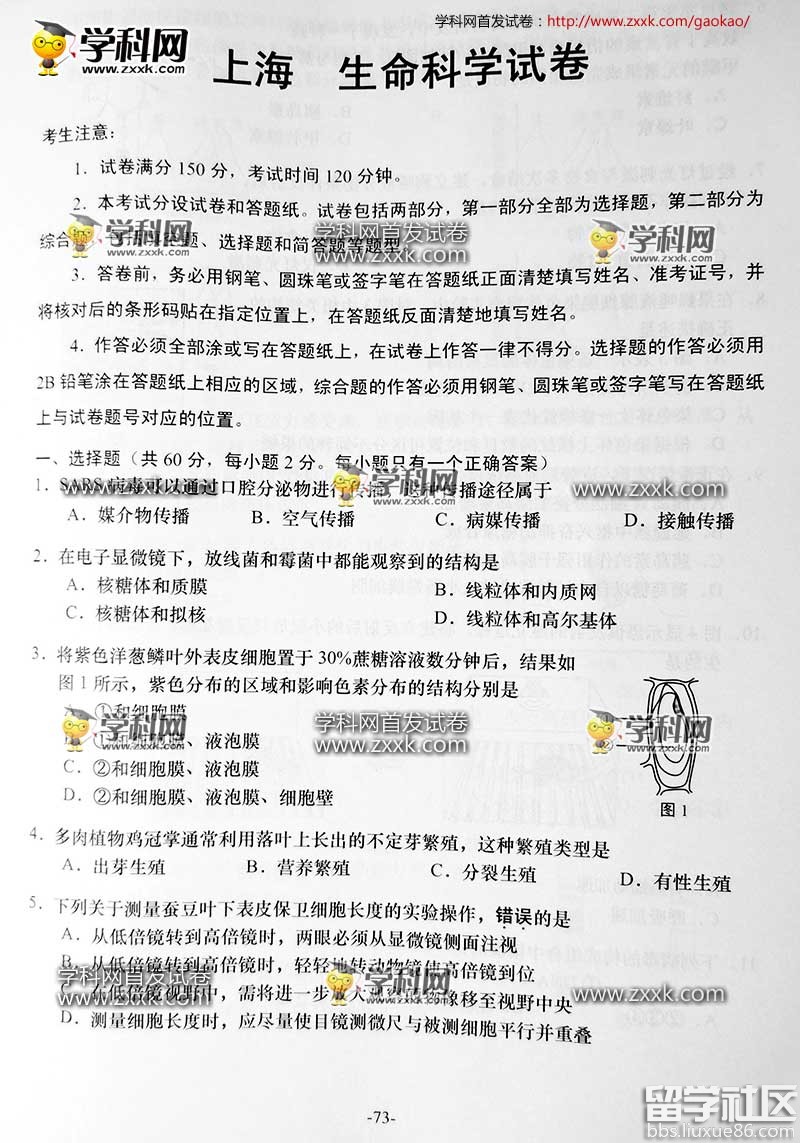 学科网首发试卷：http://www.zxxk.com/gaokao/
学科网
www.zxxk.com
上海 生命科学试卷
考生注意：
1．试卷满分 150 分，考试时间 120 分钟。
2．本考试分设试卷和答题纸。试卷包括两部分，第一部分全部为选择题，第二部分为
综合题，题、选择题和简答题等题型。
学科网
www.zxxk.com
学科网首发试卷
www.zxxk.com
学科网
www.zxxk.com
3．答卷前，务必用钢笔、圆珠笔或签字笔在答题纸正面清楚填写姓名、准考证号，并
将核对后的条形码贴在指定位置上，在答题纸反面清楚地填写姓名。
4．作答必须全部涂或写在答题纸上，在试卷上作答一律不得分。选择题的作答必须用
2B 铅笔涂在答题纸上相应的区域，综合题的作答必须用钢笔、圆珠笔或签字笔写在答题纸
上与试卷题号对应的位置。
一、选择题（共 60 分，每小题 2 分。每小题只有一个正确答案）
1．SARS 病毒可以通过口腔分泌物进行传播，这种传播途径属于
学科网首发试卷
www.zxxk.com
学科网
www.zxxk.com
学科网首发试卷
www.zxxk.com
A．媒介物传播 B．空气传播 C．病媒传播 D．接触传播
2．在电子显微镜下，放线菌和霉菌中都能观察到的结构是
A．核糖体和质膜 B．线粒体和内质网
C．核糖体和拟核 D．线粒体和高尔基体
3．将紫色洋葱鳞叶外表皮细胞置于 30%蔗糖溶液数分钟后，结果如
图 1 所示，紫色分布的区域和影响色素分布的结构分别是
A．①和细胞膜
学科网
www.zxxk.com
学科网首发试卷
www.zxxk.com
学科网
www.zxxk.com
B．①和细胞膜、液泡膜
C．②和细胞膜、液泡膜
D．②和细胞膜、液泡膜、细胞壁
②
图 1
4．多肉植物鸡冠掌通常利用落叶上长出的不定芽繁殖，这种繁殖类型是
A．出芽生殖 B．营养繁殖 C．分裂生殖 D．有性生殖
5．下列关于测量蚕豆叶下表皮保卫细胞长度的实验操作，错误的是
A．从低倍镜转到高倍镜时，两眼必须从显微镜侧面注视
B．从低倍镜转到高倍镜时，轻轻地转动物镜使高倍镜到位
学科网首发试卷
www.zxxk.com
学科网
www.zxxk.com
学科网首发试卷
www.zxxk.com
C．在低倍镜视野中，需将进一步放大像移至视野中央
D．测量细胞长度时，应尽量使目镜测微尺与被测细胞平行并重叠
-73-
留学社区
bbs.liuxue86.com